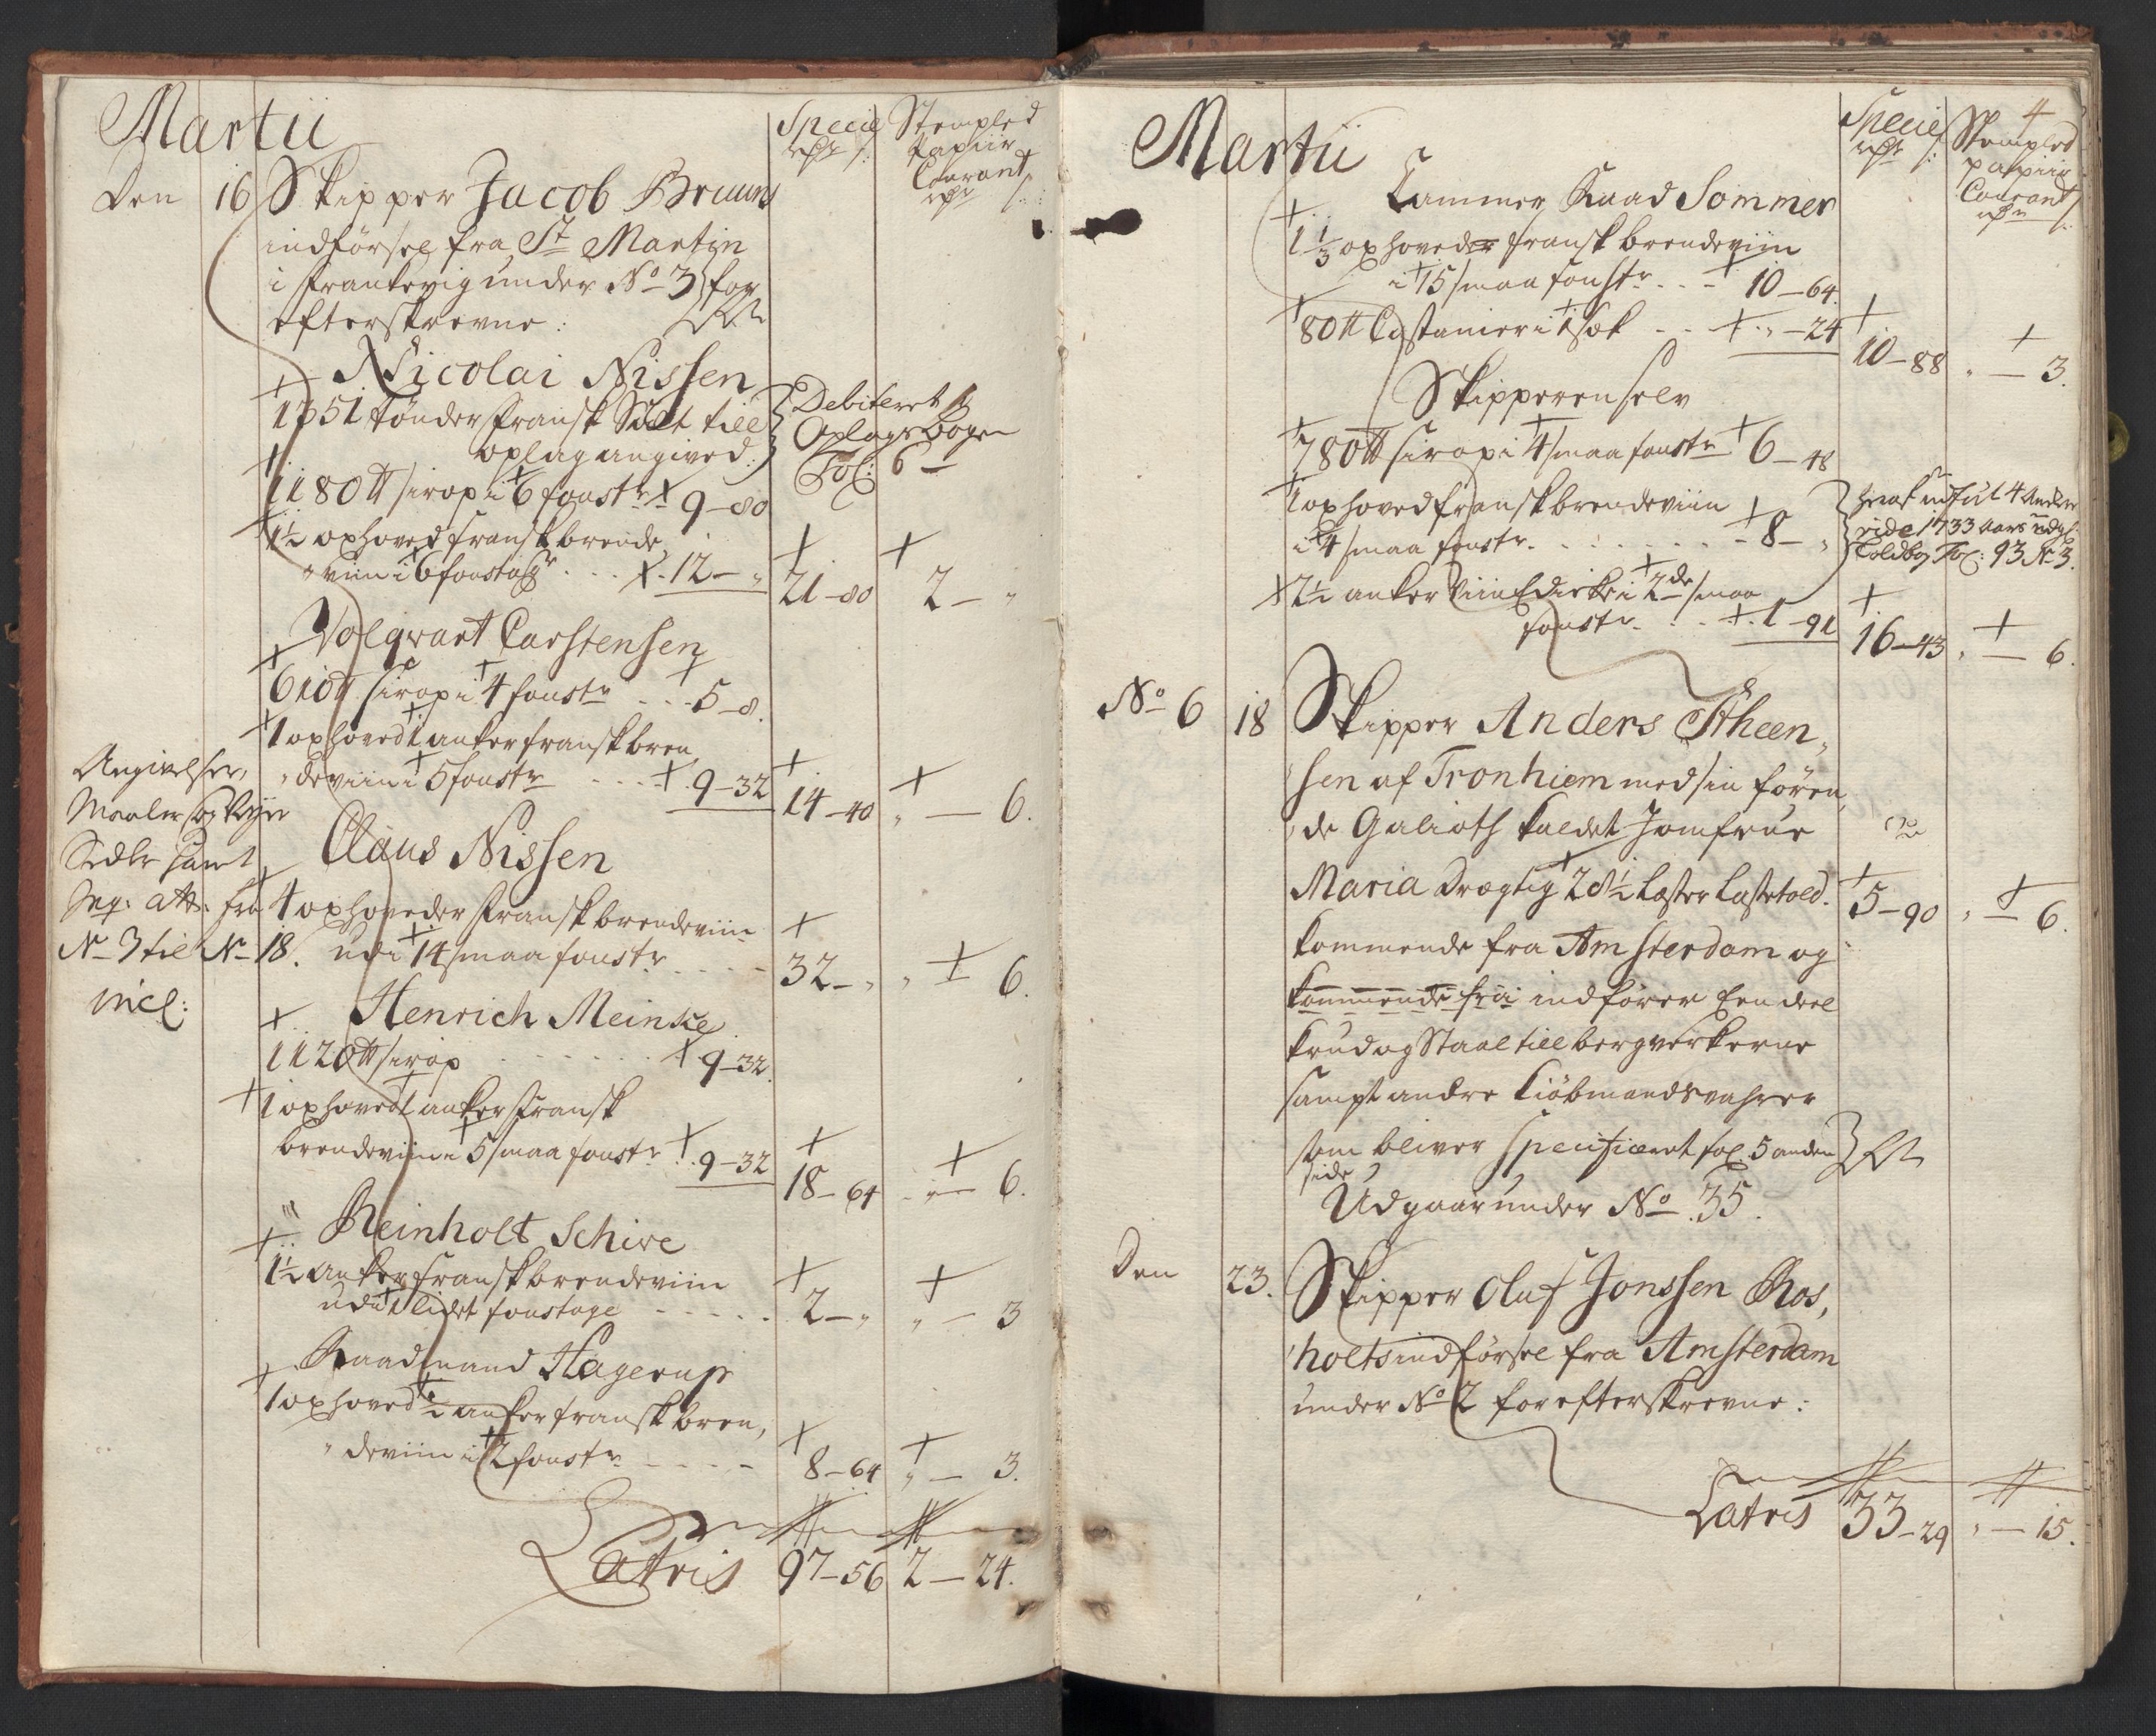 Martii
Specie Stempled
rdr ß: Papiir
Courant
rdr ß:
Den 16 Skipper Jacob Bruuns
indførsel fra St Martin
i Frankerig under No 3 for
efterskrevne:
Nicolai Nissen
1351 tønder fransk Salt till
oplag angived:
Debiteret
Oplags Bogen
Fol: 6 —
1180 tt sirop i 6 foustr 9—80
1½ oxhoved fransk brende,
„viin i 6 foustager . . . 12— „ 21—80 2— „
Volqvart Carstensen
610 tt sirop i 4 foustr . . . 5—8.
1 oxhoved 1 anker fransk bren,
„deviin i 5 foustr . . . 9—32 14—40 „ — 6.
Angivelser,
Maaler og Veyer
Sedler samt
Inq: att: fra
No 3 til No 18.
incl:
Claus Nissen
4 oxhoveder fransk brendeviin
udi 14 smaa foustr . . . 32— „ „ — 6.
Henrich Meincke
1120 tt sirop . . . 9—32.
1 oxhoved 1 anker fransk
brendeviin i 5 smaa foustr . 9—32 18—64 „ — 6.
Reinholt Schive
1½ Anker fransk brendeviin
udi 1 lidet foustage . . . 2— „ „ — 3
Raadmand Hagerup
1 oxhoved ½ anker fransk bren,
„deviin i 2 foustr . . . 8—64 „ — 3.
Latris 97—56 2—24.
4
Martii
Specie Stempled
rdr ß: papiir
Courant
rdr ß:
Cammer Raad Sommer
1⅓ oxhoveder fransk brendeviin
i 15 smaa foustr . . . 10—64.
80 tt Castanier i 1 sæk . . „—24 10—88 „ — 3.
Skipperen selv
780 tt sirop i 4 smaa foustr 6—48
1 oxhoved fransk brendeviin
i 4 smaa foustr . . . 8— „
4 Anker
vide 1733 Aars udg:
Toldbog Fol: 93 No 3.
2½ anker Viin Edicke i 2de smaa
foustr . . . 1—91 16—43 „ — 6.
No 6 18 Skipper Anders Stheen,
„sen af Tronhiem med sin føren,
„de Galioth kaldet Jomfrue
Maria drægtig 28½ Læster Lastetold. 5—90 „ — 6.
kommende fra Amsterdam og
kommende fra indfører Een deel
krud og Staal till bergverkerne
sampt andre Kiøbmandsvahrer
som bliver specificeret fol. 5 anden
side
Udgaar under No 35.
Den 23. Skipper Oluf Jonssen Ros,
„holts indførsel fra Amsterdam
under No 2 for efterskrevne:
Latris 33—29 „ — 15.